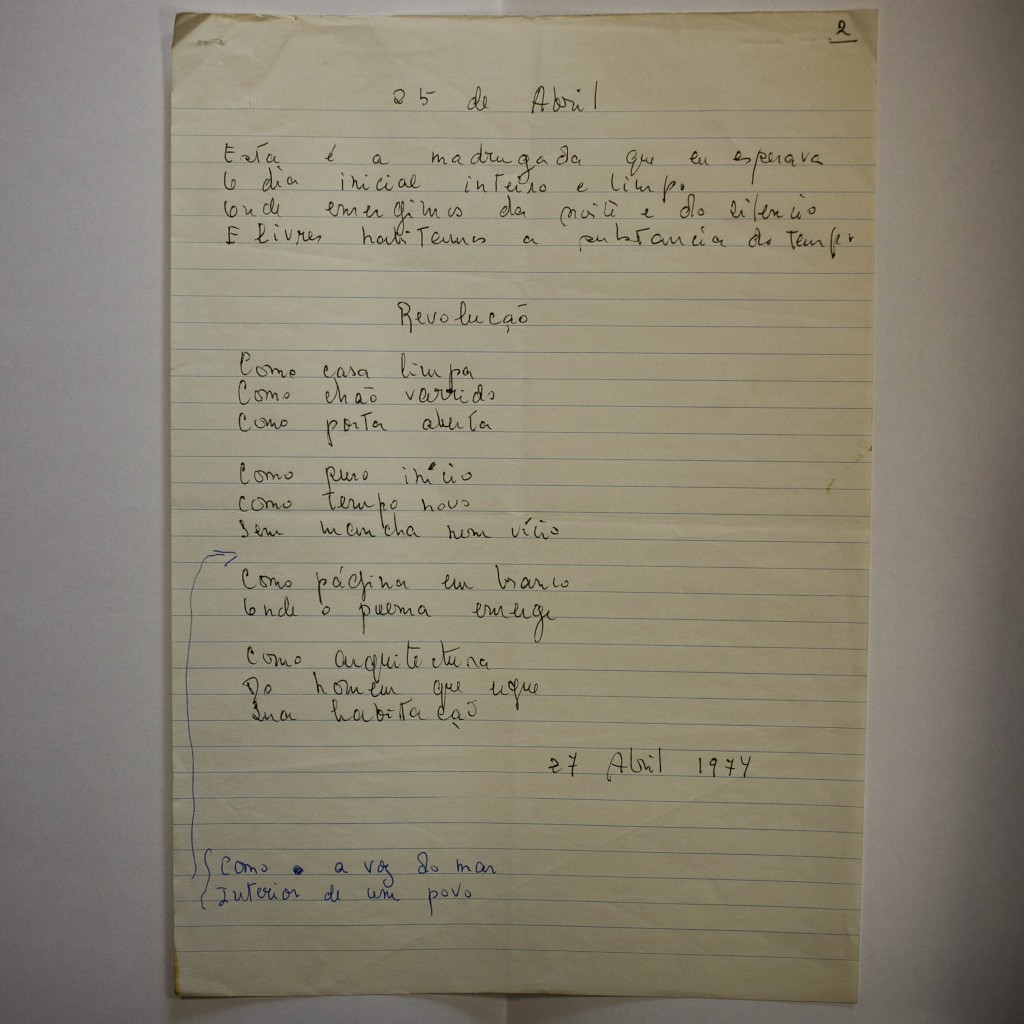 2
25 de Abril
Esta é a madrugada que eu esperava
O dia inicial inteiro e limpo
Onde emergimos da noite e do silencio
E livres habitamos a substancia do tempo
Revolução
Como casa limpa
Como chão varrido
Como porta aberta
Como puro início
Como tempo novo
Sem mancha nem vício
Como página em branco
Onde o poema emerge
Como arquitectura
Do homem que ergue
Sua habitação
27 Abril 1974
Como a voz do mar
Interior de um povo